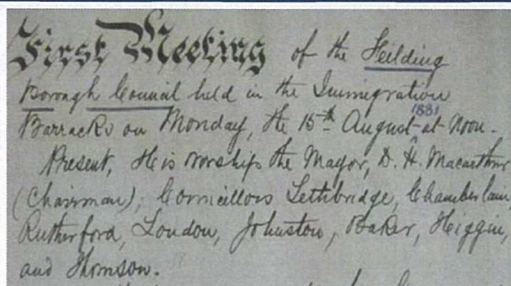 First Meeting of the Feilding
Borough Council held in the Immigration
Barracks on Monday, the 15th August 1881 at noon.
Present, His worship the Mayor, D. H. Macarthur
(Chairman); Councillors Lethbridge, Chamberlain,
Rutherford, London, Johnston, Baker, Higgin,
and Thomson.